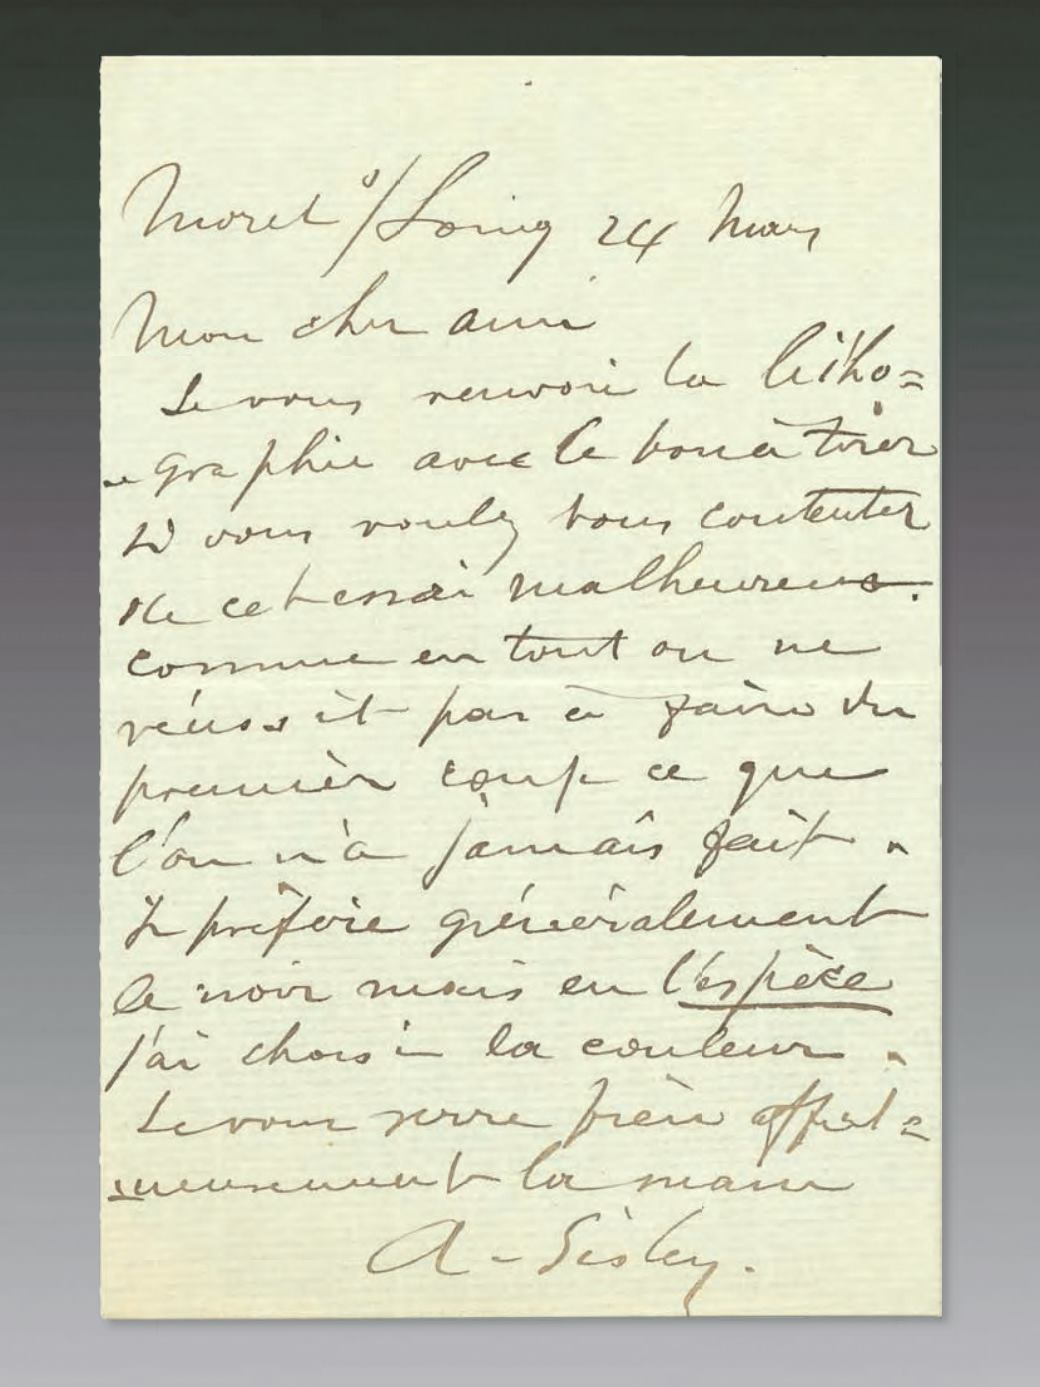 Moret s/Loing 24 Mars
Mon cher ami
Je vous renvoie la litho=
=graphie avec le bon à tirer
Si vous voulez vous contenter
de cet essai malheureux.
comme en tout on ne
réussit pas à faire du
premier coup ce que
l'on n'a jamais fait.
Je préfère généralement
le noir mais en l'espèce
j'ai choisi la couleur.
Je vous serre bien affect=
=ueusement la main
A. Sisley.